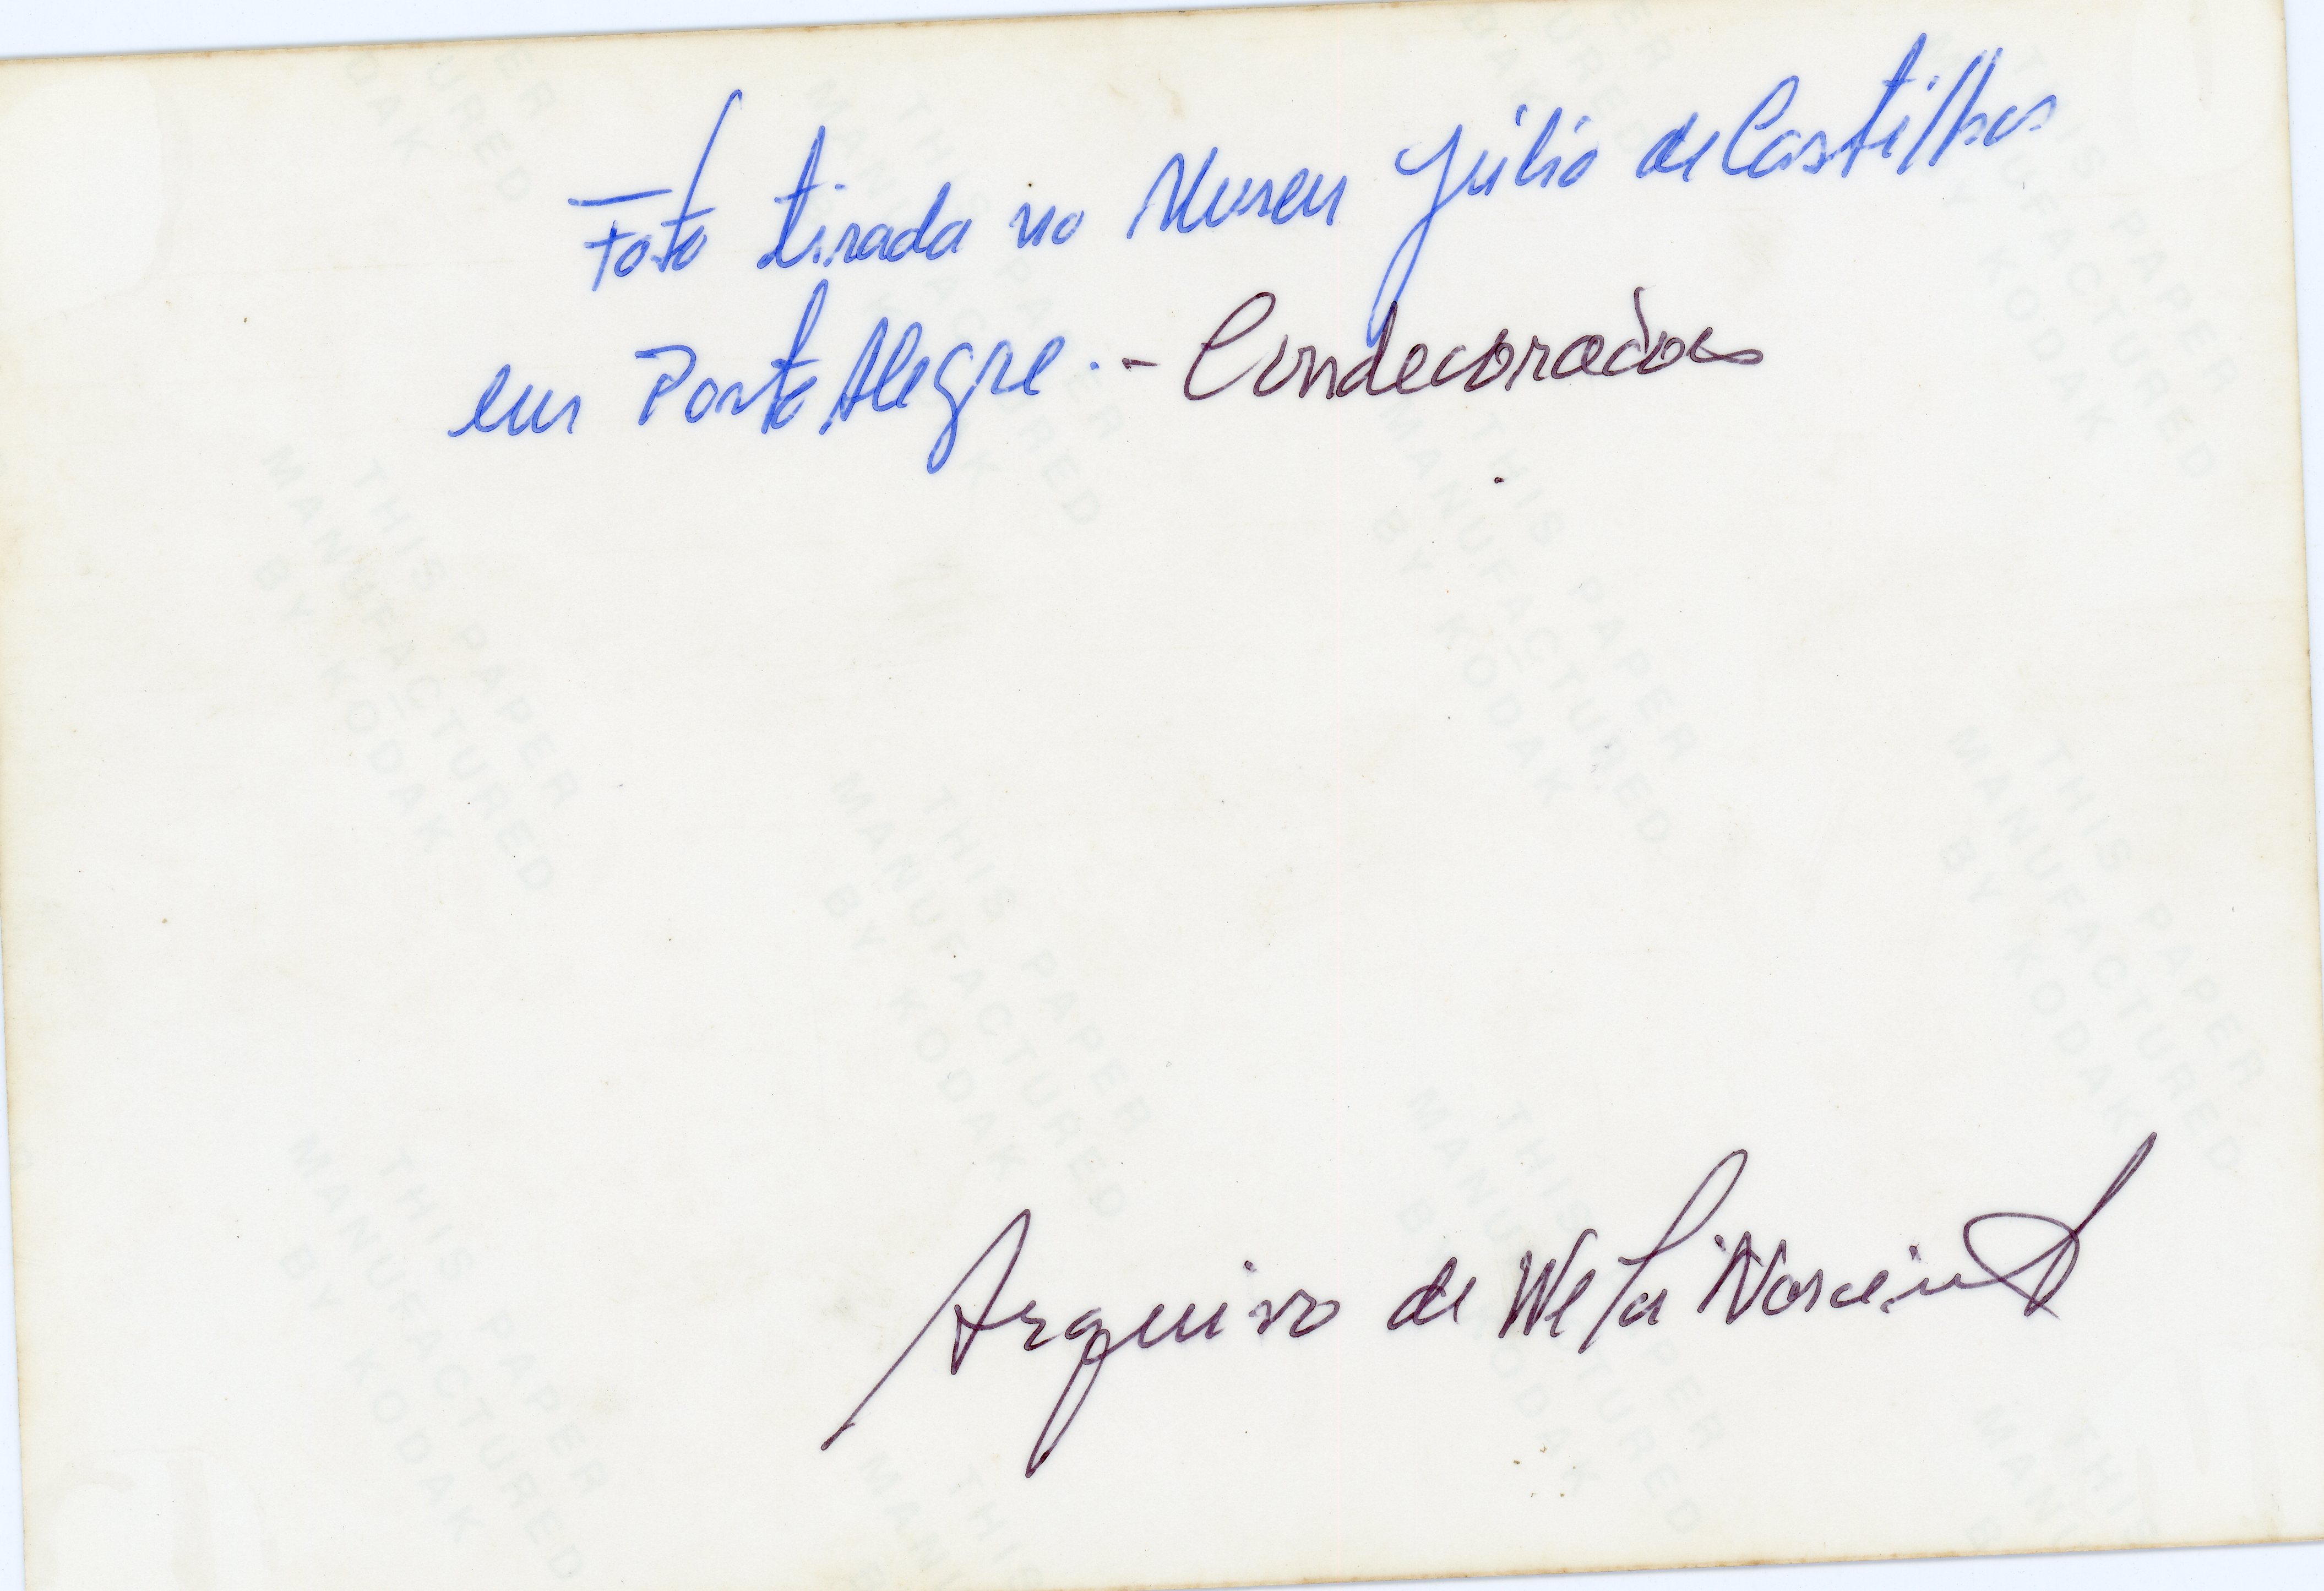 Foto tirada no Museu Júlio de Castilhos
em Porto Alegre. - Condecorados
Arquivo de
THIS PAPER
MANUFACTURED
BY KODAK